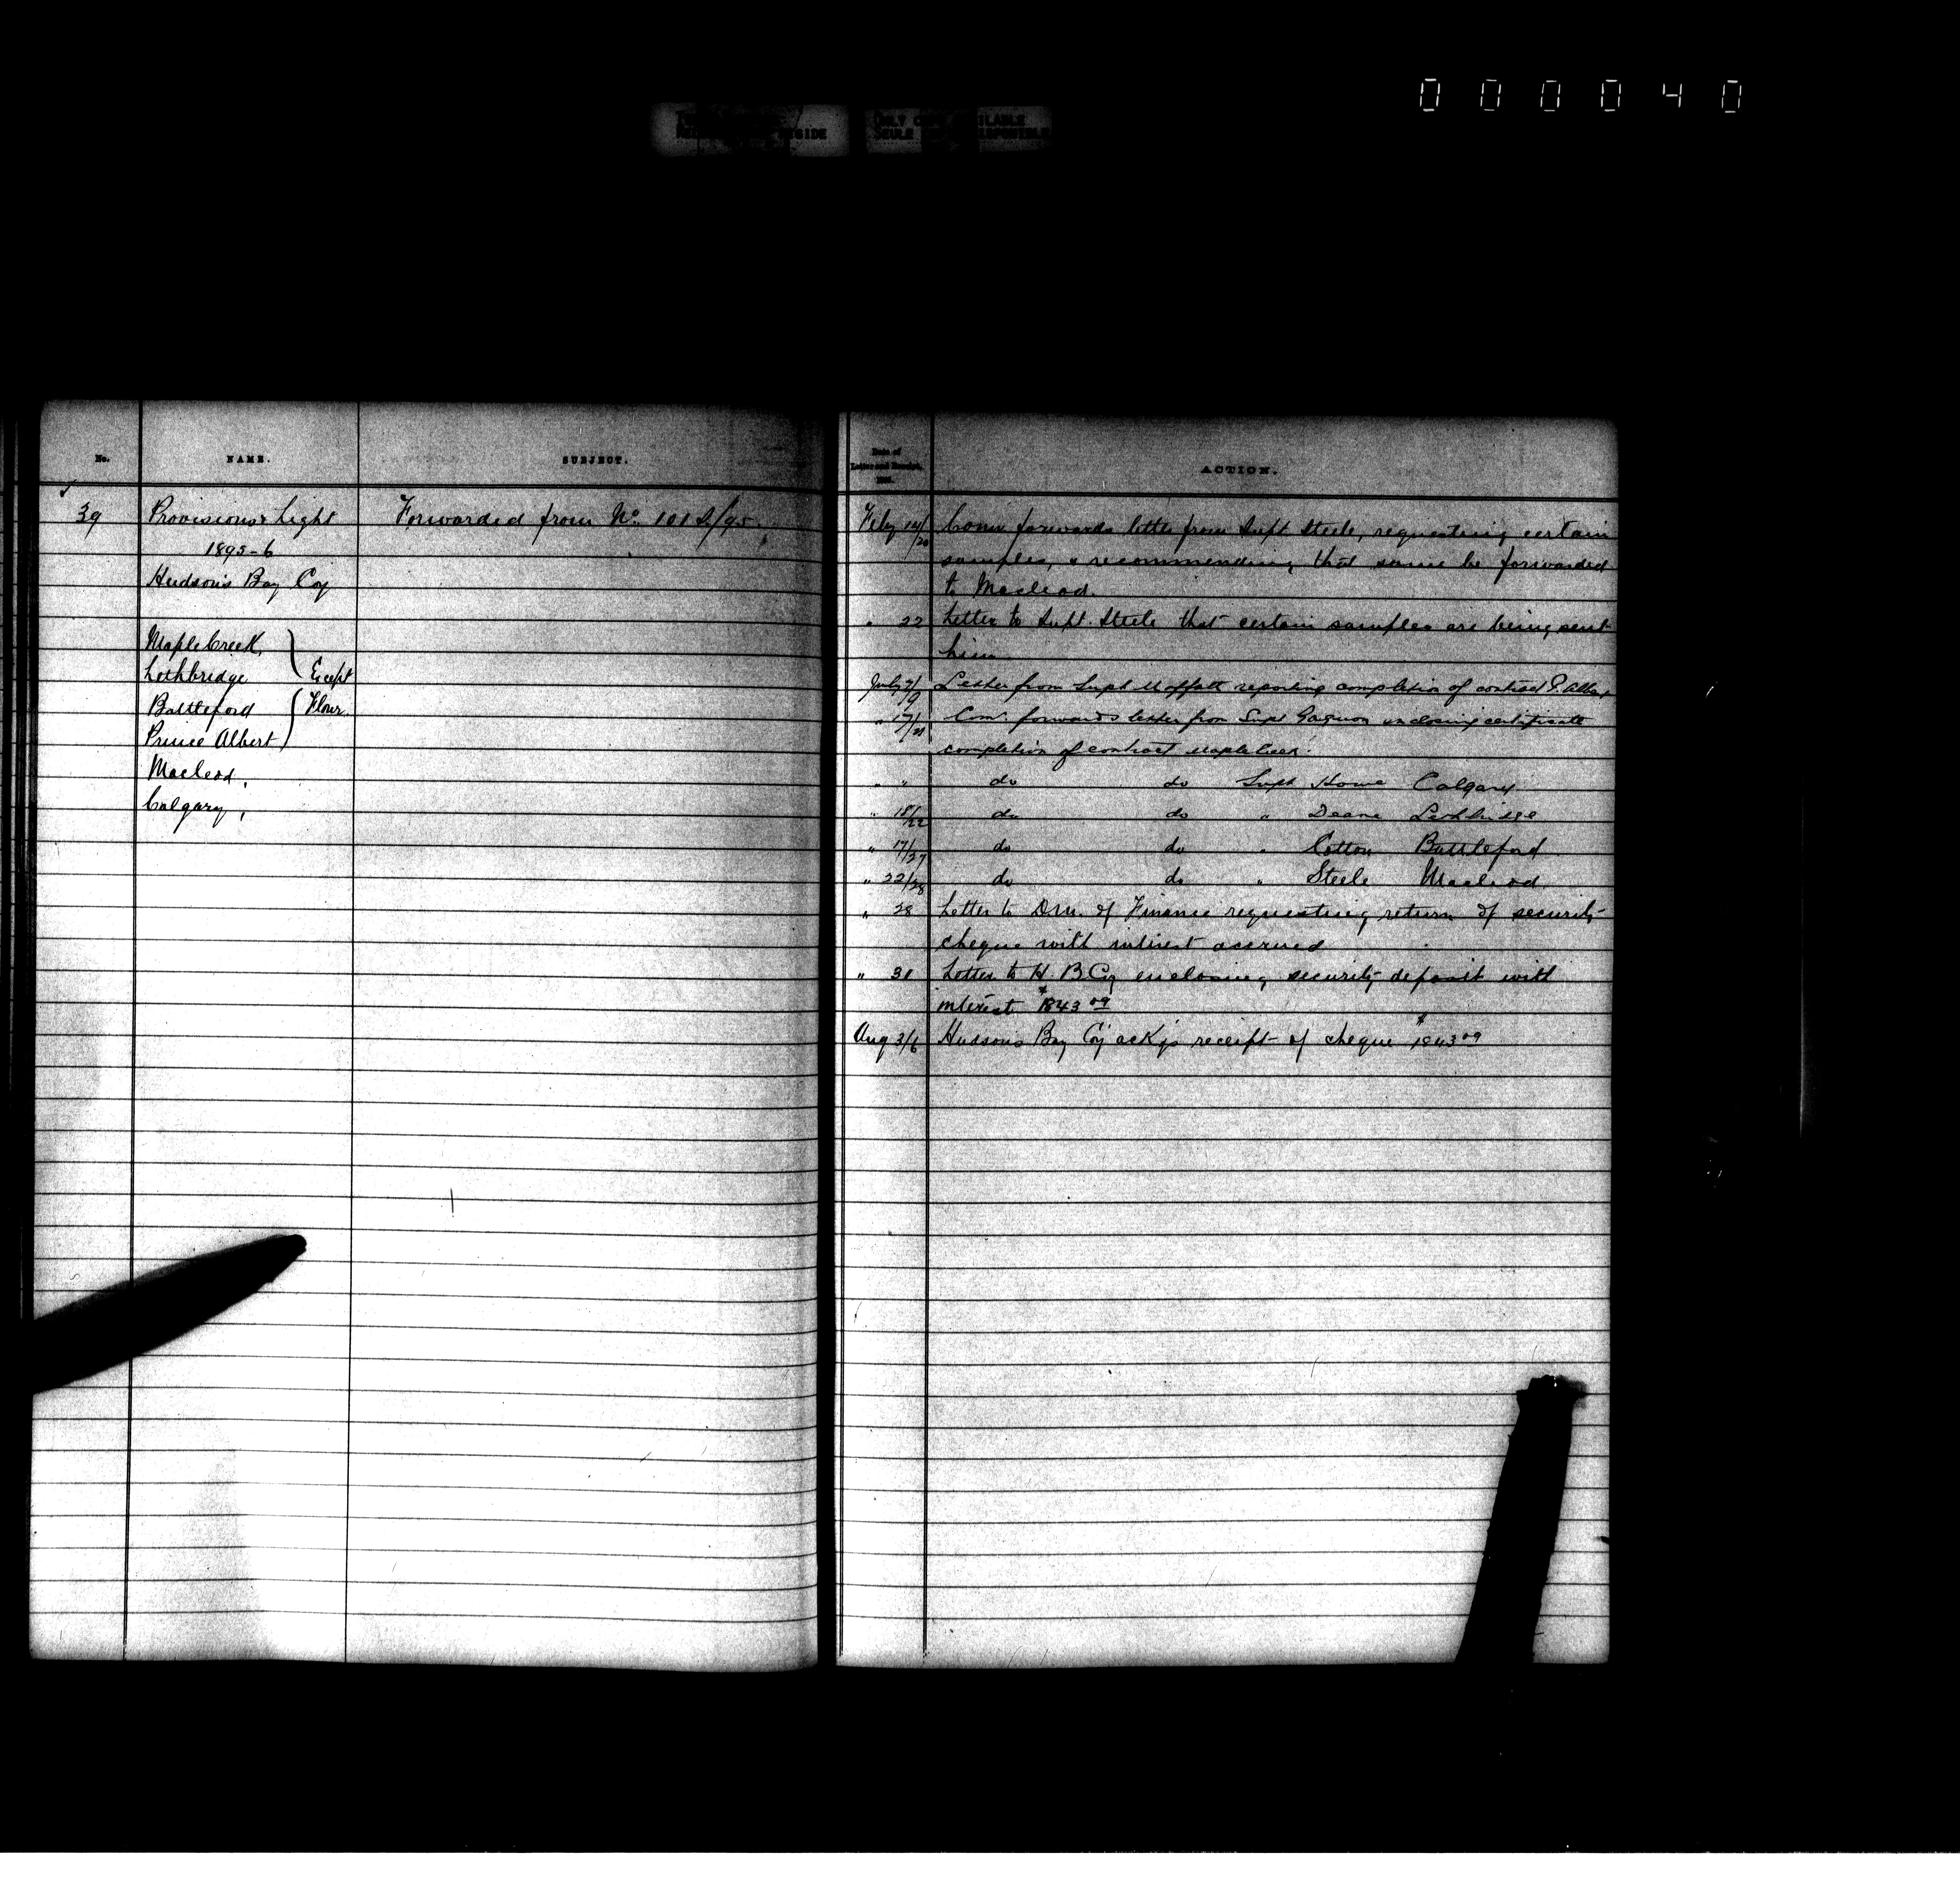 000040
ONLY COPY AVAILABLE
SEULE
No.
NAME.
SUBJECT.
39
Provisions & Light
Forwarded from No. 101 S./95.
1895-6
Hudson's Bay Coy
Maple Creek,
Lethbridge
Except
Battleford
Flour.
Prince Albert
Macleod,
Calgary,
Date of
Letter and Receipt,
ACTION.
Feby 14/20 Comr forwards letter from Supt Steele, requesting certain
samples, & recommending that same be forwarded
to Macleod.
" 22 Letter to Supt. Steele that certain samples are being sent
him
July 2/9 Letter from Supt Moffatt reporting completion of contract P. Albert
" 17/21 Comr. forwards letter from Supt Gagnon enclosing certificate
completion of contract Maple Creek.
" " do do Supt Howe Calgary
" 18/22 do do " Deane Lethbridge
" 17/27 do do " Cotton Battleford
" 22/28 do do " Steele Macleod
" 28 Letter to D.M. of Finance requesting return of security
cheque with interest accrued
" 30 Letter to H. B. Coy enclosing security deposit with
interest $1843 09
Aug 3/6 Hudson's Bay Coy ackgs receipt of cheque $1843 09